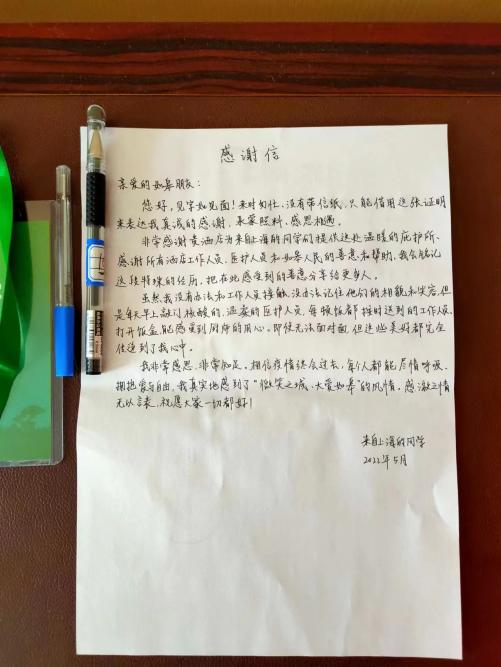 感谢信
亲爱的如皋朋友：
您好，见字如见面！来时匆忙，没有带信纸，只能借用这张证明
来表达我真诚的感谢，承蒙照料，感恩相遇。
非常感谢贵酒店为来自上海的同学们提供这处温暖的庇护所，
感谢所有酒店工作人员、医护人员和如皋人民的善意和帮助，我会铭记
这段特殊的经历，把在此感受到的善意分享给更多人。
虽然我没有办法和工作人员接触，没办法记住他们的相貌和笑容，但
是每天早上敲门核酸的、温柔的医护人员，每顿饭都按时送到的工作人员，
打开饭盒，能感受到厨师的用心。即使无法面对面，但这些美好都完全
住进了我心中。
我非常感恩、非常知足。相信疫情终会过去，每个人都能尽情呼吸、
拥抱爱与自由。我真实地感到了“微笑之城、大爱如皋”的风情，感激之情
无以言表，祝愿大家一切都好！
来自上海的同学
2022年5月